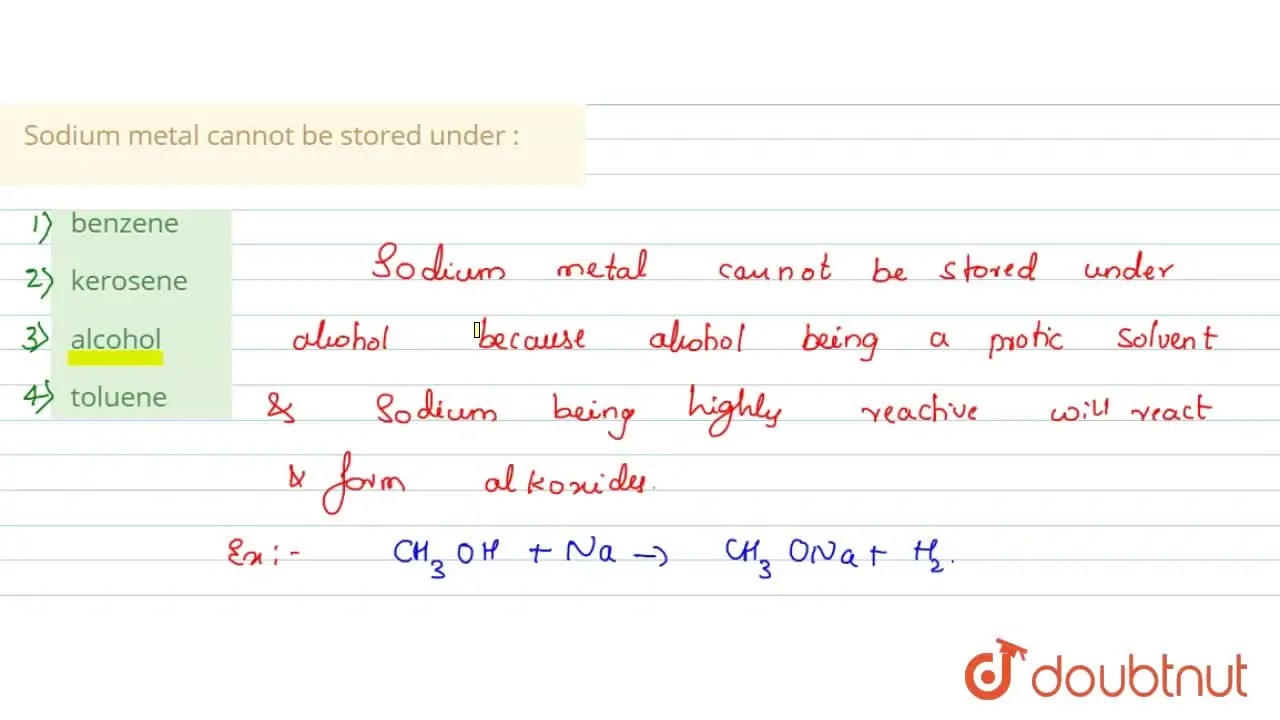 Sodium metal cannot be stored under :
1) benzene
2) kerosene
3) alcohol
4) toluene
Sodium metal cannot be stored under
alcohol because alcohol being a protic solvent
& Sodium being highly reactive will react
& form alkoxides.
Ex :- CH3OH + Na → CH3ONa + H2.
doubtnut